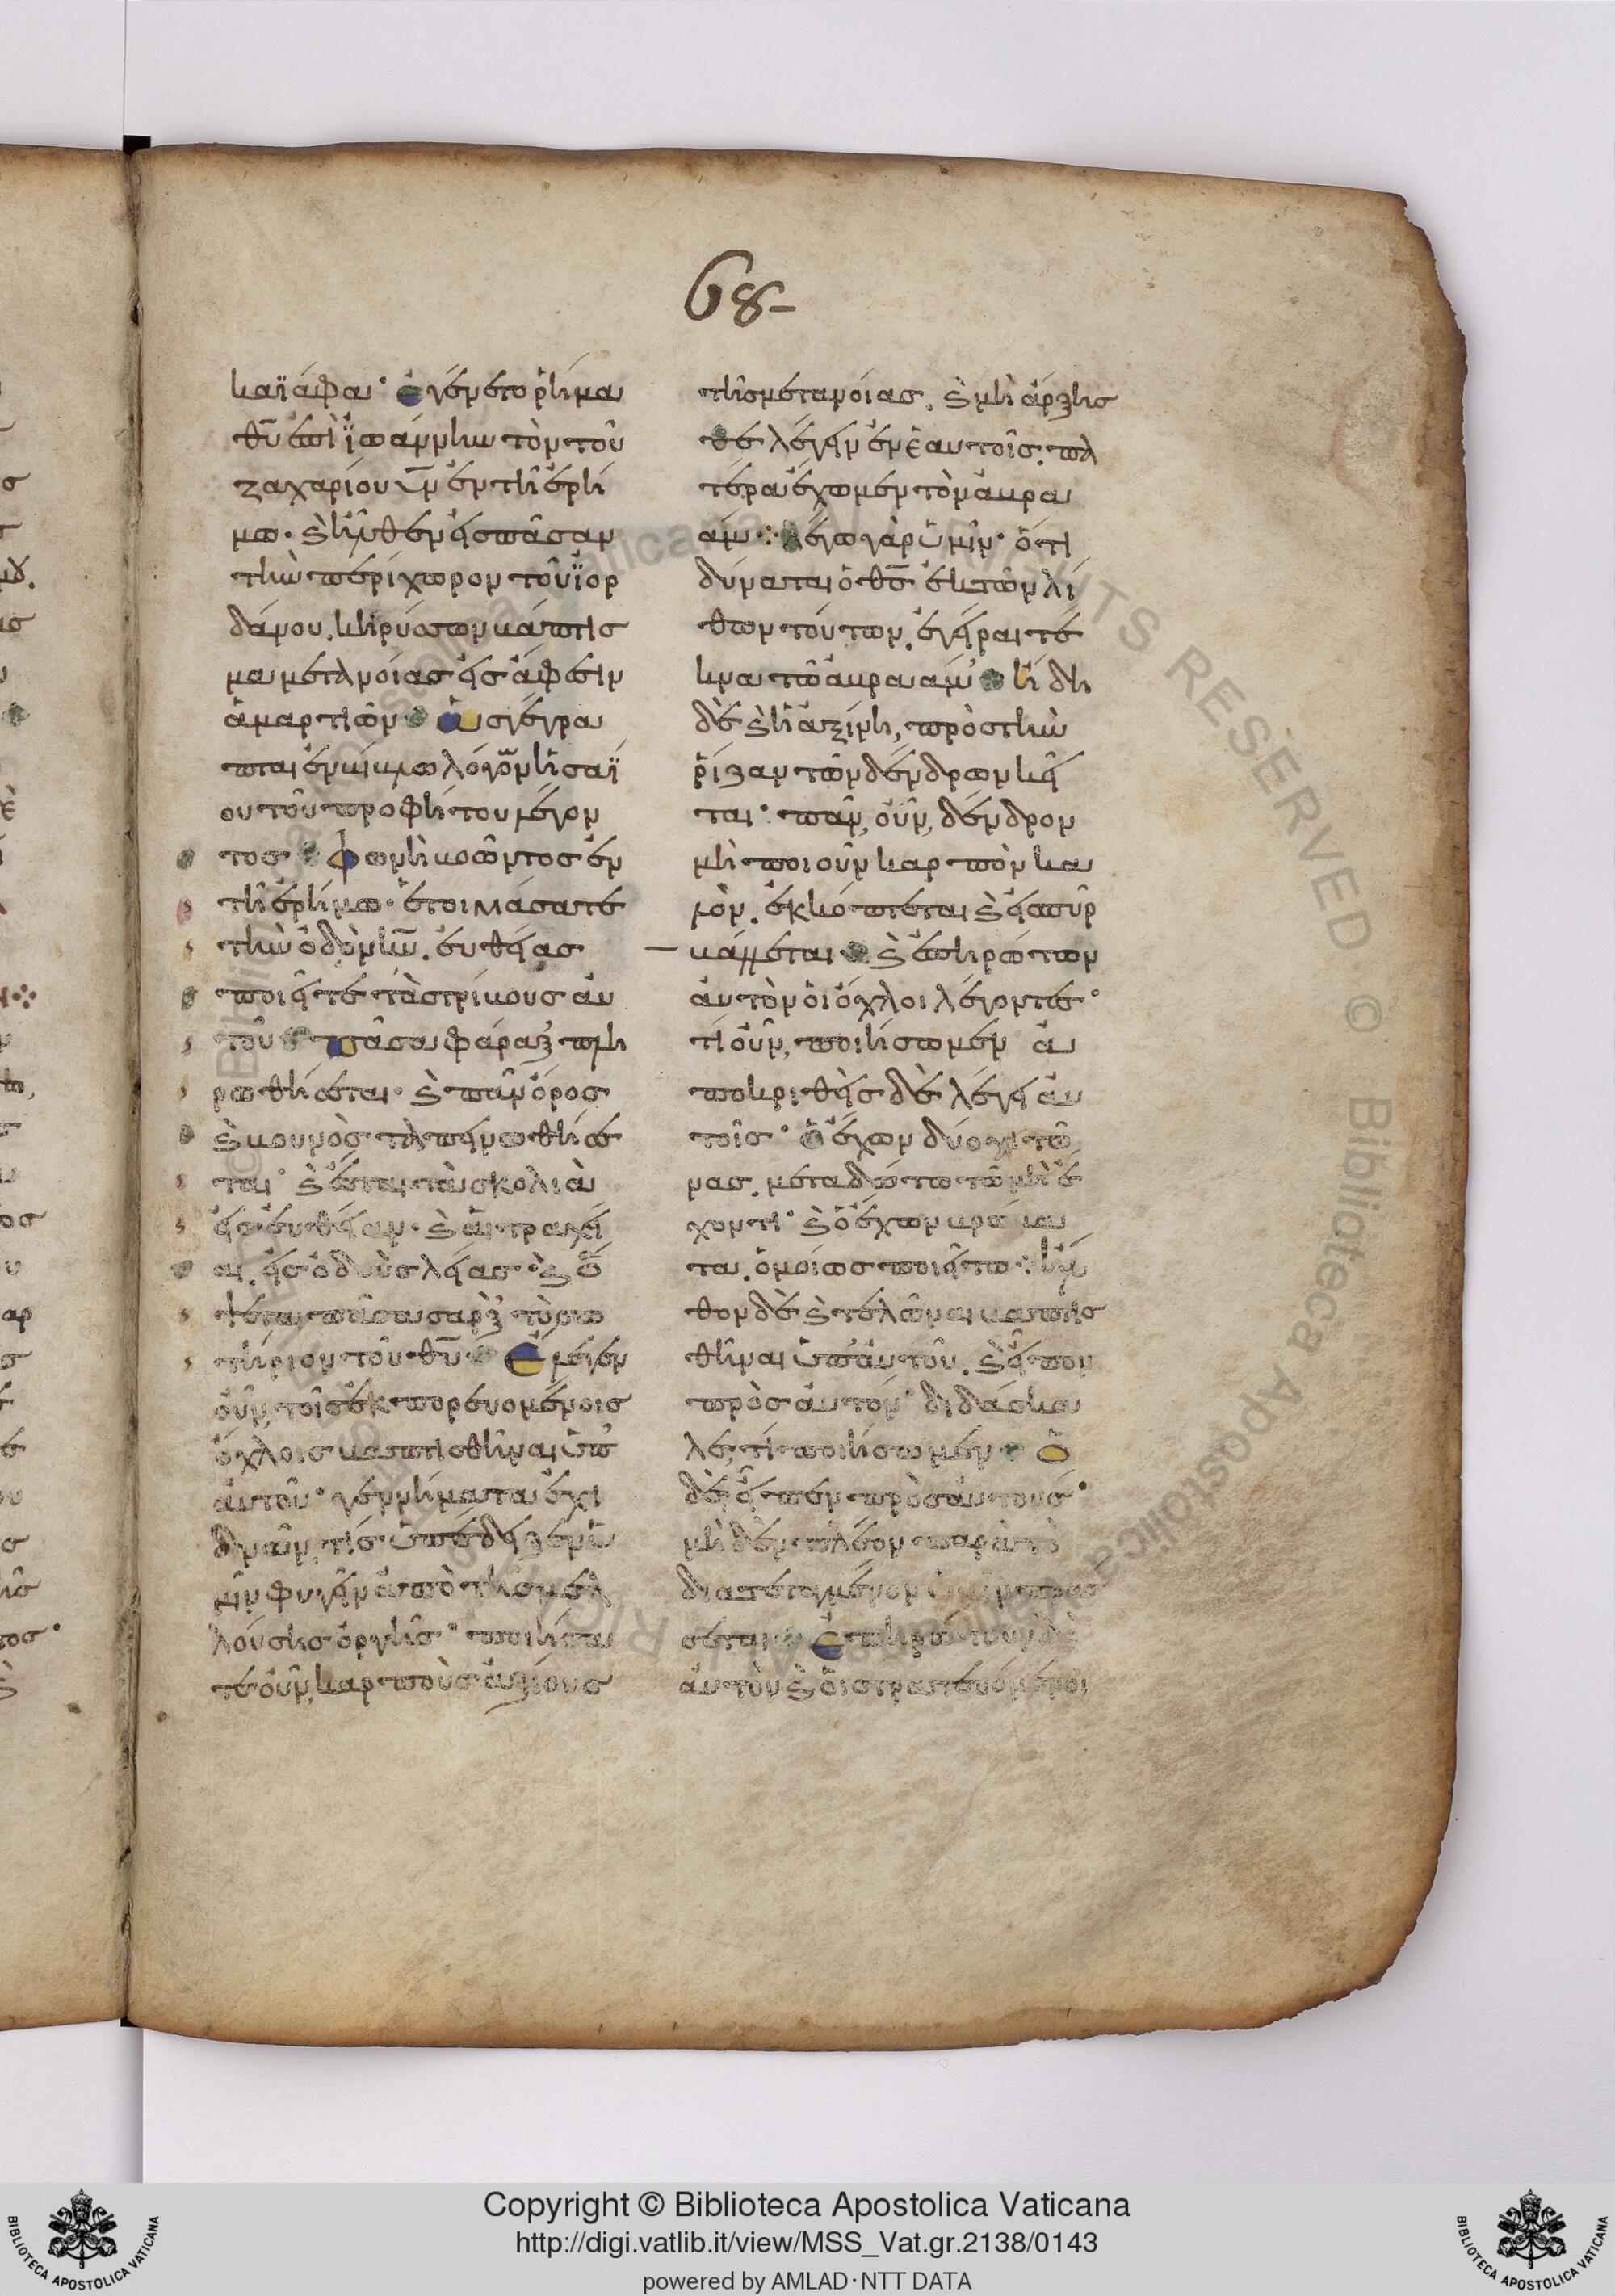 68-
καϊάφα· ἐγένετο ῥῆμα
θ̅υ̅ ἐπὶ ϊωάννην τὸν τοῦ
ζαχαρίου υ̅ν̅ ἐν τῆ ἐρή
μω· ϗ ἦλθεν εἰς πᾶσαν
τὴν περίχωρον τοῦ ϊορ
δάνου. κηρύσσων βάπτισ
μα μετανοίας εἰς ἄφεσιν
ἁμαρτιῶν ὡς γέγρα
πται ἐν βίβλω λόγων ἡσαϊ
ου τοῦ προφήτου λέγον
τος φωνὴ βοῶντος ἐν
τῆ ἐρήμω· ἑτοιμάσατε
τὴν ὁδὸν κ̅υ̅. εὐθείας
ποιεῖτε τὰς τρίβους αὐ
τοῦ πᾶσα φάραξ πλη
ρωθήσεται· ϗ πᾶν ὄρος
ϗ βουνὸς ταπεινωθήσε
ται· ϗ ἔσται τὰ σκολιὰ
εἰς εὐθείαν· ϗ αἱ τραχεῖ
αι εἰς ὁδοὺς λείας· ϗ ὄ
ψεται πᾶσα σὰρξ τὸ σω
τήριον τοῦ θ̅υ̅ Ἔλεγεν
οὖν τοῖς ἐκπορευομένοις
ὄχλοις βαπτισθῆναι ὑπ'
αὐτοῦ· γεννήματα ἐχι
δνῶν, τίς ὑπέδειξεν ὑ
μῖν φυγεῖν ἀπὸ τῆς μελ
λούσης ὀργῆς· ποιήσα
τε οὖν, καρποὺς ἀξίους
τῆς μετανοίας. ϗ μὴ ἄρξης
θε λέγειν ἐν ἑαυτοῖς. πα
τέρα ἔχομεν τὸν ἀβρα
άμ· λέγω γὰρ ὑμῖν· ὅτι
δύναται ὁ θ̅ς̅ ἐκ τῶν λί
θων τούτων. ἐγεῖραι τέ
κνα τῶ ἀβραάμ ἤδη
δὲ ϗ ἡ ἀξίνη, πρὸς τὴν
ῥίζαν τῶν δένδρων κεῖ
ται· πᾶν, οὖν, δένδρον
μὴ ποιοῦν καρπὸν κα
λὸν. ἐκκόπτεται ϗ εἰς πῦρ
βάλλεται ϗ ἐπηρώτων
αὐτὸν οἱ ὄχλοι λέγοντες·
τί οὖν, ποιήσωμεν ἀ
ποκριθεὶς δὲ λέγει αὐ
τοῖς· ὁ ἔχων δύο χιτῶ
νας. μεταδότω τῶ μὴ ἔ
χοντι· ϗ ὁ ἔχων βρώμα
τα. ὁμοίως ποιείτω· ἦλ
θον δὲ ϗ τελῶναι βαπτισ
θῆναι ὑπ' αὐτοῦ. ϗ εἶπον
πρὸς αὐτόν· διδάσκα
λε, τί ποιήσωμεν ὁ
δὲ εἶπεν πρὸς αὐτούς·
μηδὲν πλέον παρὰ τὸ
διατεταγμένον ὑμῖν πράσ
σεται ἐπηρώτουν δὲ
αὐτὸν ϗ οἱ στρατευόμενοι
Copyright © Biblioteca Apostolica Vaticana
http://digi.vatlib.it/view/MSS_Vat.gr.2138/0143
powered by AMLAD·NTT DATA
BIBLIOTECA APOSTOLICA VATICANA
BIBLIOTECA APOSTOLICA VATICANA